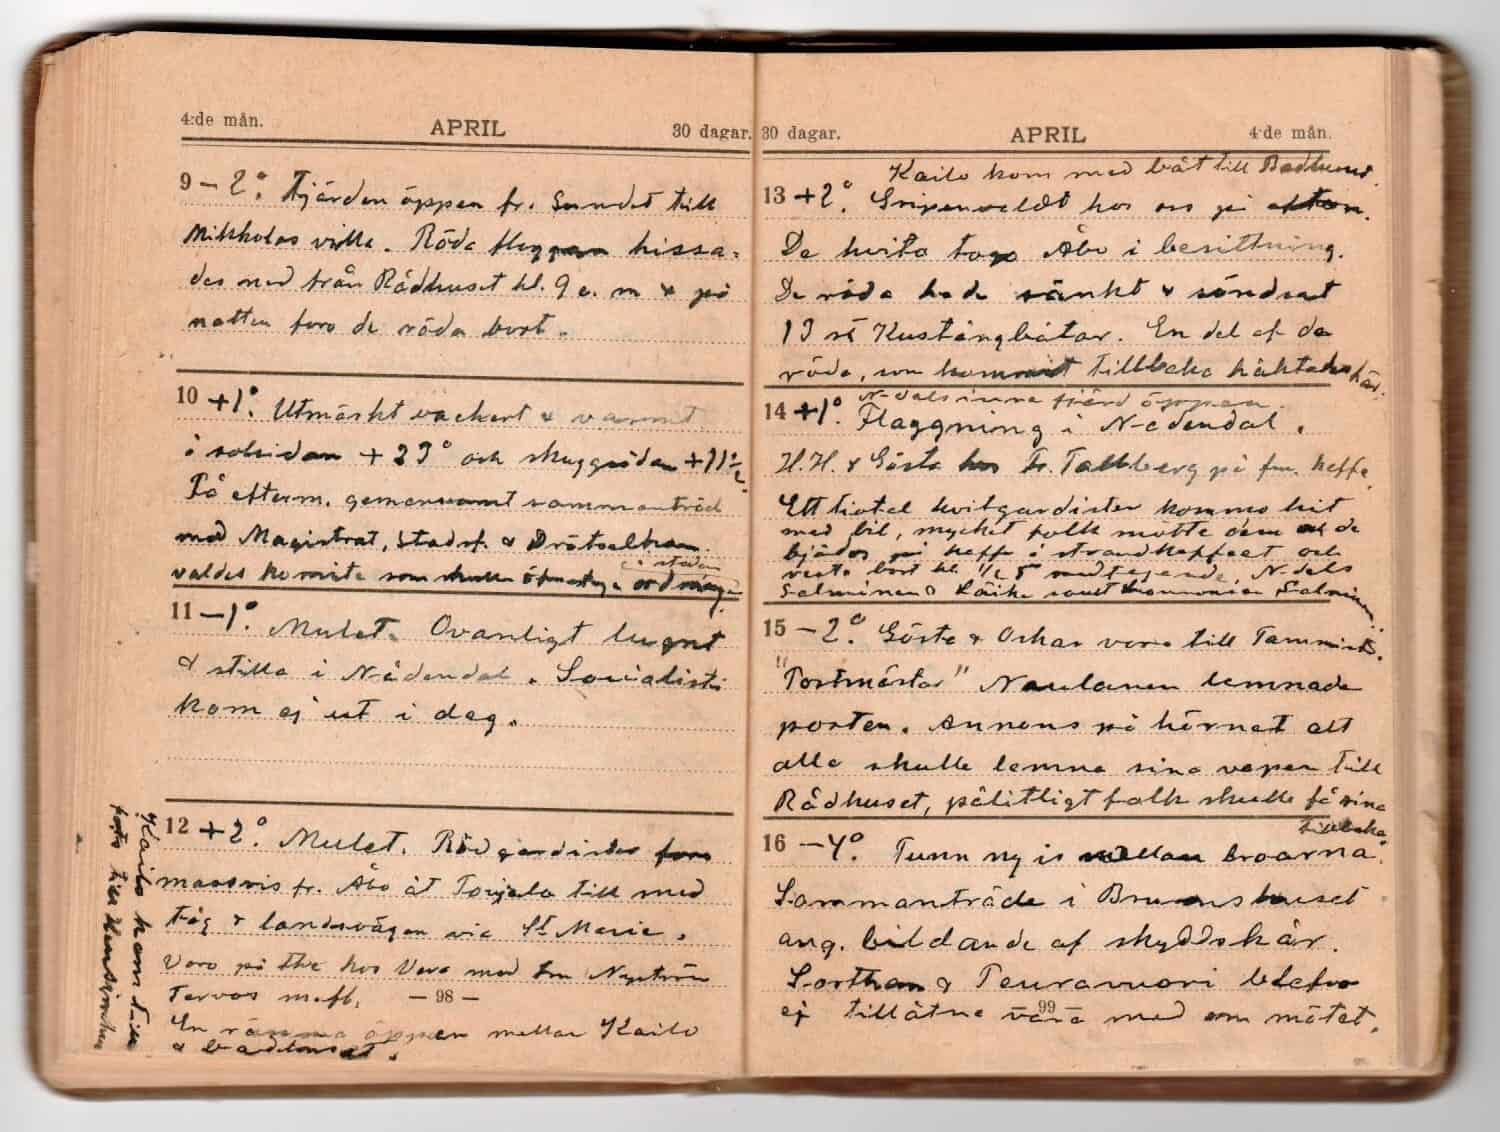 4:de mån. APRIL 30 dagar.
9 – 2°. Fjärden öppen fr. Sundet till
Mikkolas villa. Röda flaggan hissa-
des ned från Rådhuset kl. 9 e. m & på
natten foro de röda bort.
10 +1°. Utmärkt vackert & varmt
i solsidan +23° och skuggsidan +11½
På efterm. gemensamt sammanträd
med Magistrat, Stadsf. & Drätselkam.
i staden
valdes komite som skulle ordning
11 –1°. Mulet. Ovanligt lugnt
& stilla i Nådendal. Socialisti
kom ej ut i dag.
12 +2°. Mulet. Röd gardister foro
massvis fr. Åbo åt Toijala till med
tåg & landsvägen via St Marie.
Voro på the hos Vera med Nyström
Tervos
– 98 –
En ränna öppen mellan Kailo
& badhuset.
Kailo kom till
30 dagar. APRIL 4:de mån.
Kailo kom med båt till Badhuset.
13 +2°. Gripenvaldt hos oss på afton.
De hvita togo Åbo i besittning.
De röda hade sänkt & söndrat
13 st Kustångbåtar. En del af de
röda, som kommit tillbaka häktades här.
N-dals inre fjärd öppen.
14 +1°. Flaggning i N-dendal.
H.H. & Gösta hos Fr. Tallberg på fm. kaffe.
Ett tiotal hvitgardister kommo hit
med bil, mycket folk mötte dem och de
bjödos på kaffe i strandkaffeet och
reste bort kl. ½ 5 medtagande, N-dals
Salminen & samt Salminen.
15 –2°. Gösta & Oskar voro till Tammisto.
"Postmästar" Naulanen lemnade
posten. Annons på hörnet att
alla skulle lemna sina vapen till
Rådhuset, pålitligt folk skulle få sina
tillbaka
16 –4°. Tunn ny is mellan broarna.
Sammanträde i Brunnshuset
ang. bildande af skyddskår.
& Teuravuori blefvo
ej tillåtna vara med om mötet.
99